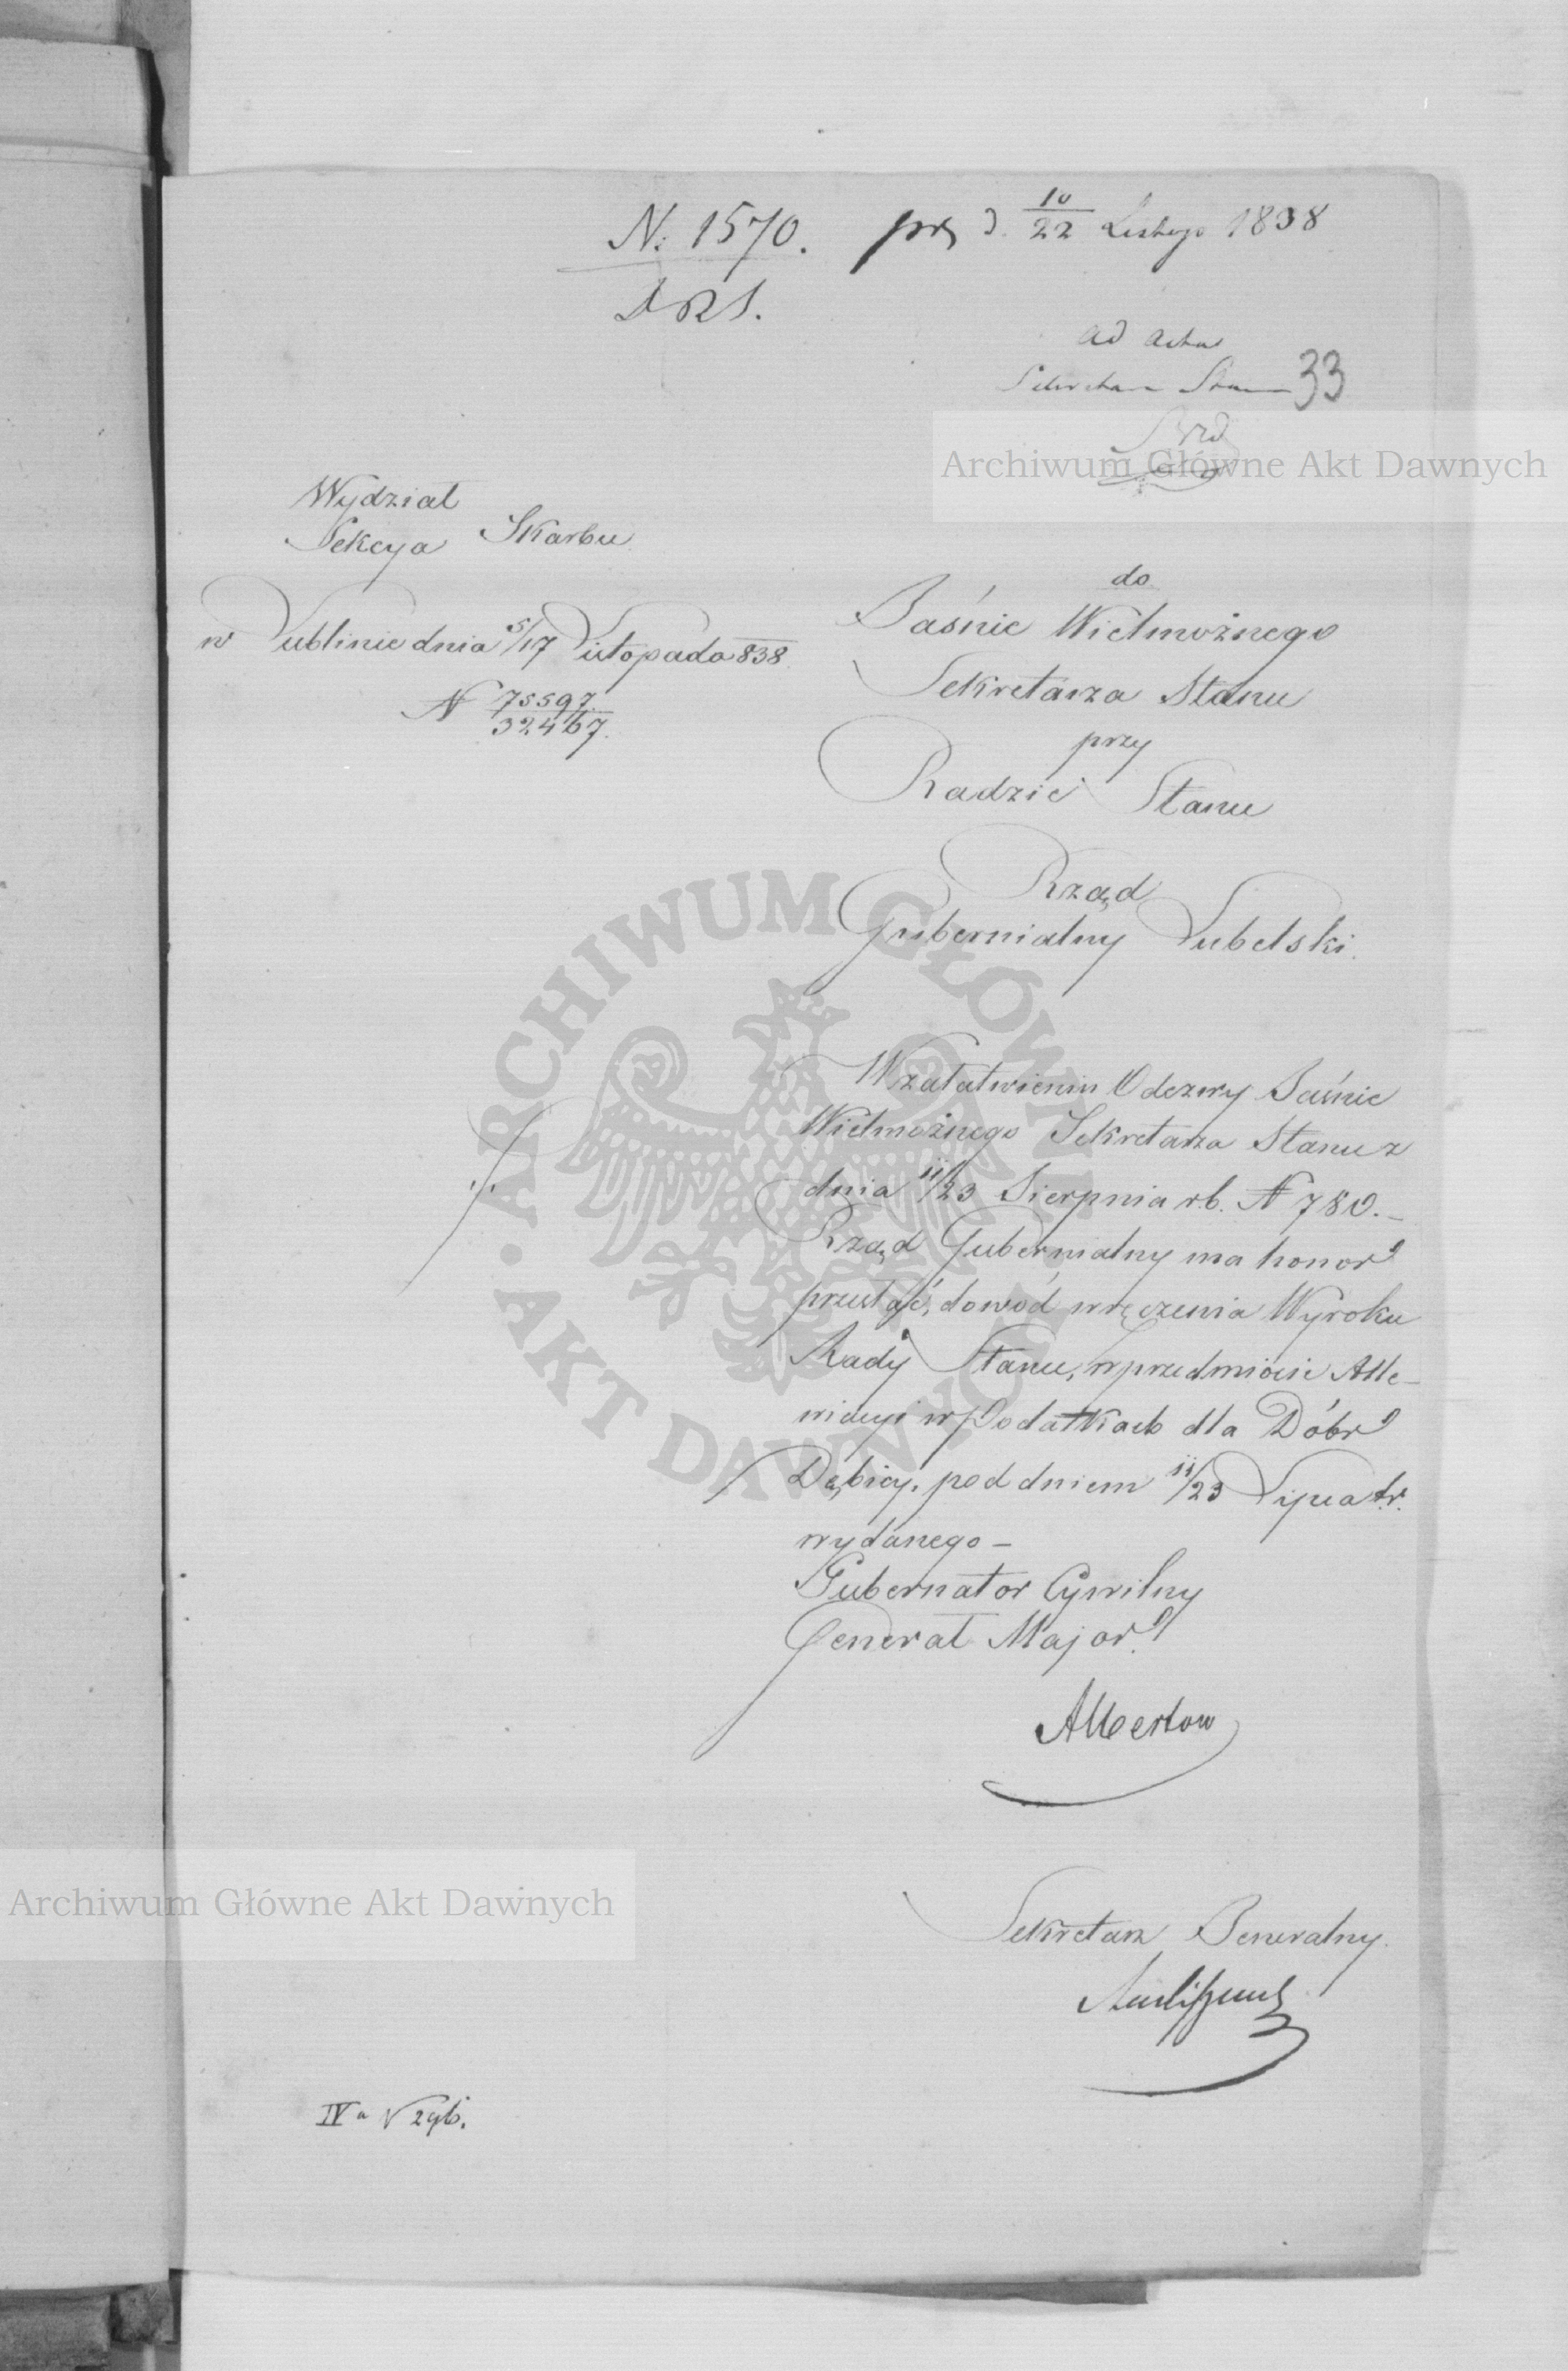 N: 1570. prz d. 10/22 Listop 1838
DRS.
ad acta
33
Archiwum Główne Akt Dawnych
Wydział
Sekcya Skarbu
w Lublinie dnia 5/17 Listopada 838
N 75597/32467.
do
Jaśnie Wielmożnego
Sekretarza Stanu
przy
Radzie Stanu
Rząd
Gubernialny Lubelski.
W załatwieniu Odezwy Jaśnie
Wielmożnego Sekretarza Stanu z
dnia 11/23 Sierpnia r.b. N 780.–
Rząd Gubernialny ma honor
przesłać, dowód wręczenia Wyroku
Rady Stanu, w przedmiocie Alle-
wiacyi w Podatkach dla Dóbr
Dębicy, pod dniem 11/23 Lipca t.r.
wydanego –
Gubernator Cywilny
Generał Major.
Albertow
Sekretarz Jeneralny.
IV a N 296.
ARCHIWUM GŁÓWNE • AKT DAWNYCH •
Archiwum Główne Akt Dawnych